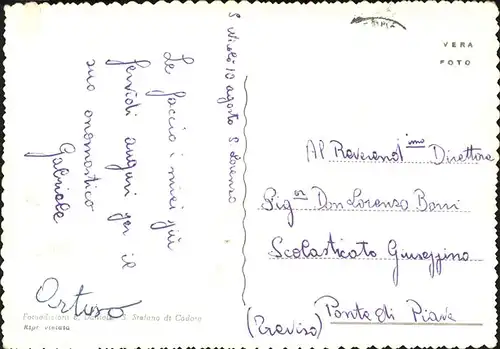 S Nicolò 10 agosto S Lorenzo
Le faccio i miei più
fervidi auguri per il
suo onomastico
Gabriele
Ortuso
Fotoedizioni S. Stefano di Cadore
Ripr. vietata
VERA
FOTO
Al Reverend.imo Direttore
Sig.or Don Lorenzo
Scolasticato Giuseppino
Ponte di Piave
(Treviso)